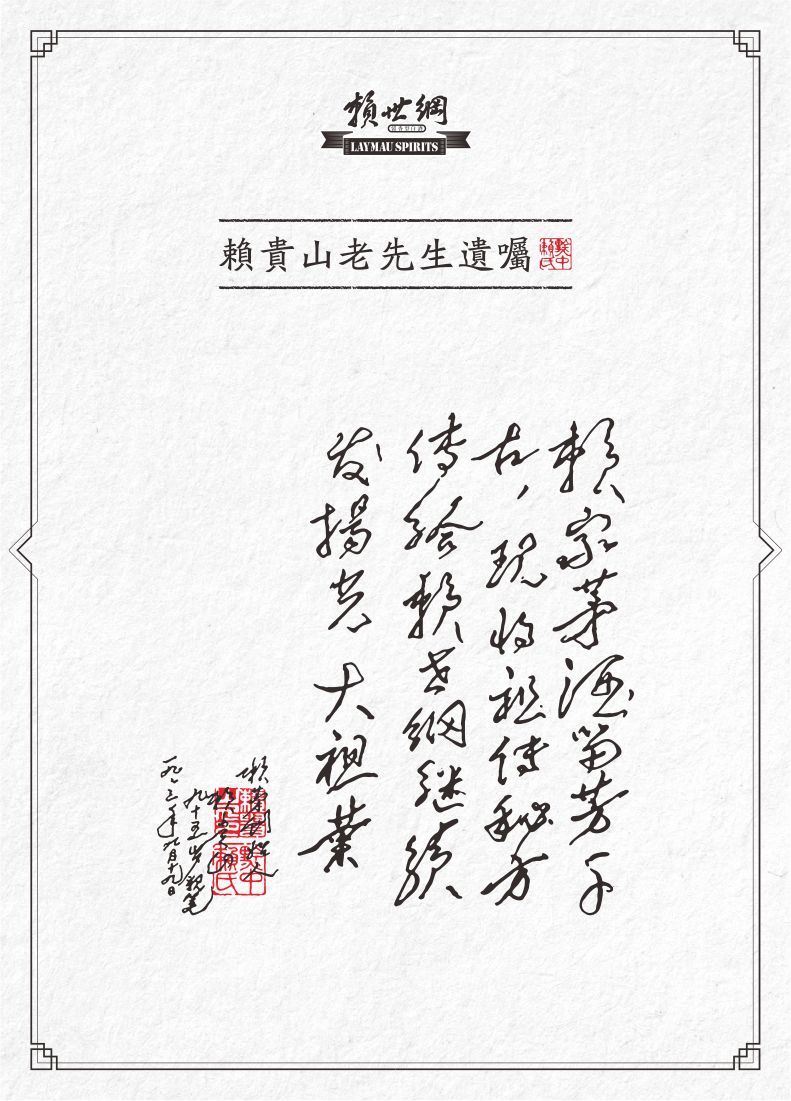 賴世綱
LAYMAU SPIRITS
賴貴山老先生遺囑
賴家茅酒留芳千
古，現将祖传秘方
传给賴世綱继续
发揚光大祖業
賴貴山
九十五岁親笔
一九八三年九月十九日